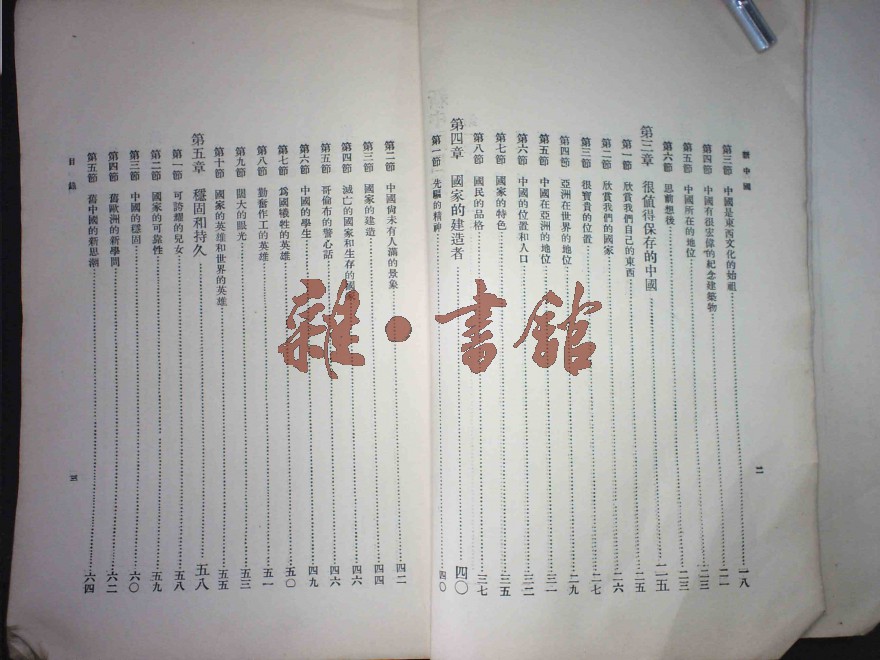 新中國
第三節 中國是東西文化的始祖 一八
第四節 中國有很宏偉的紀念建築物 二一
第五節 中國所在的地位 二三
第六節 思前想後 二三
第三章 很值得保存的中國 二五
第一節 欣賞我們自己的東西 二五
第二節 欣賞我們的國家 二六
第三節 很寶貴的位置 二七
第四節 亞洲在世界的地位 二九
第五節 中國在亞洲的地位 三一
第六節 中國的位置和人口 三二
第七節 國家的特色 三五
第八節 國民的品格 三七
第四章 國家的建造者 四〇
第一節 先驅的精神 四〇
二
第二節 中國尚未有人滿的景象 四二
第三節 國家的建造 四四
第四節 滅亡的國家和生存的國家 四六
第五節 哥倫布的警心話 四六
第六節 中國的學生 四九
第七節 為國犧牲的英雄 五〇
第八節 勤奮作工的英雄 五一
第九節 闊大的眼光 五三
第十節 國家的英雄和世界的英雄 五五
第五章 穩固和持久 五八
第一節 可誇耀的兒女 五八
第二節 國家的可靠性 五九
第三節 中國的穩固 六〇
第四節 舊歐洲的新學問 六二
第五節 舊中國的新思潮 六四
目錄
雜·書館